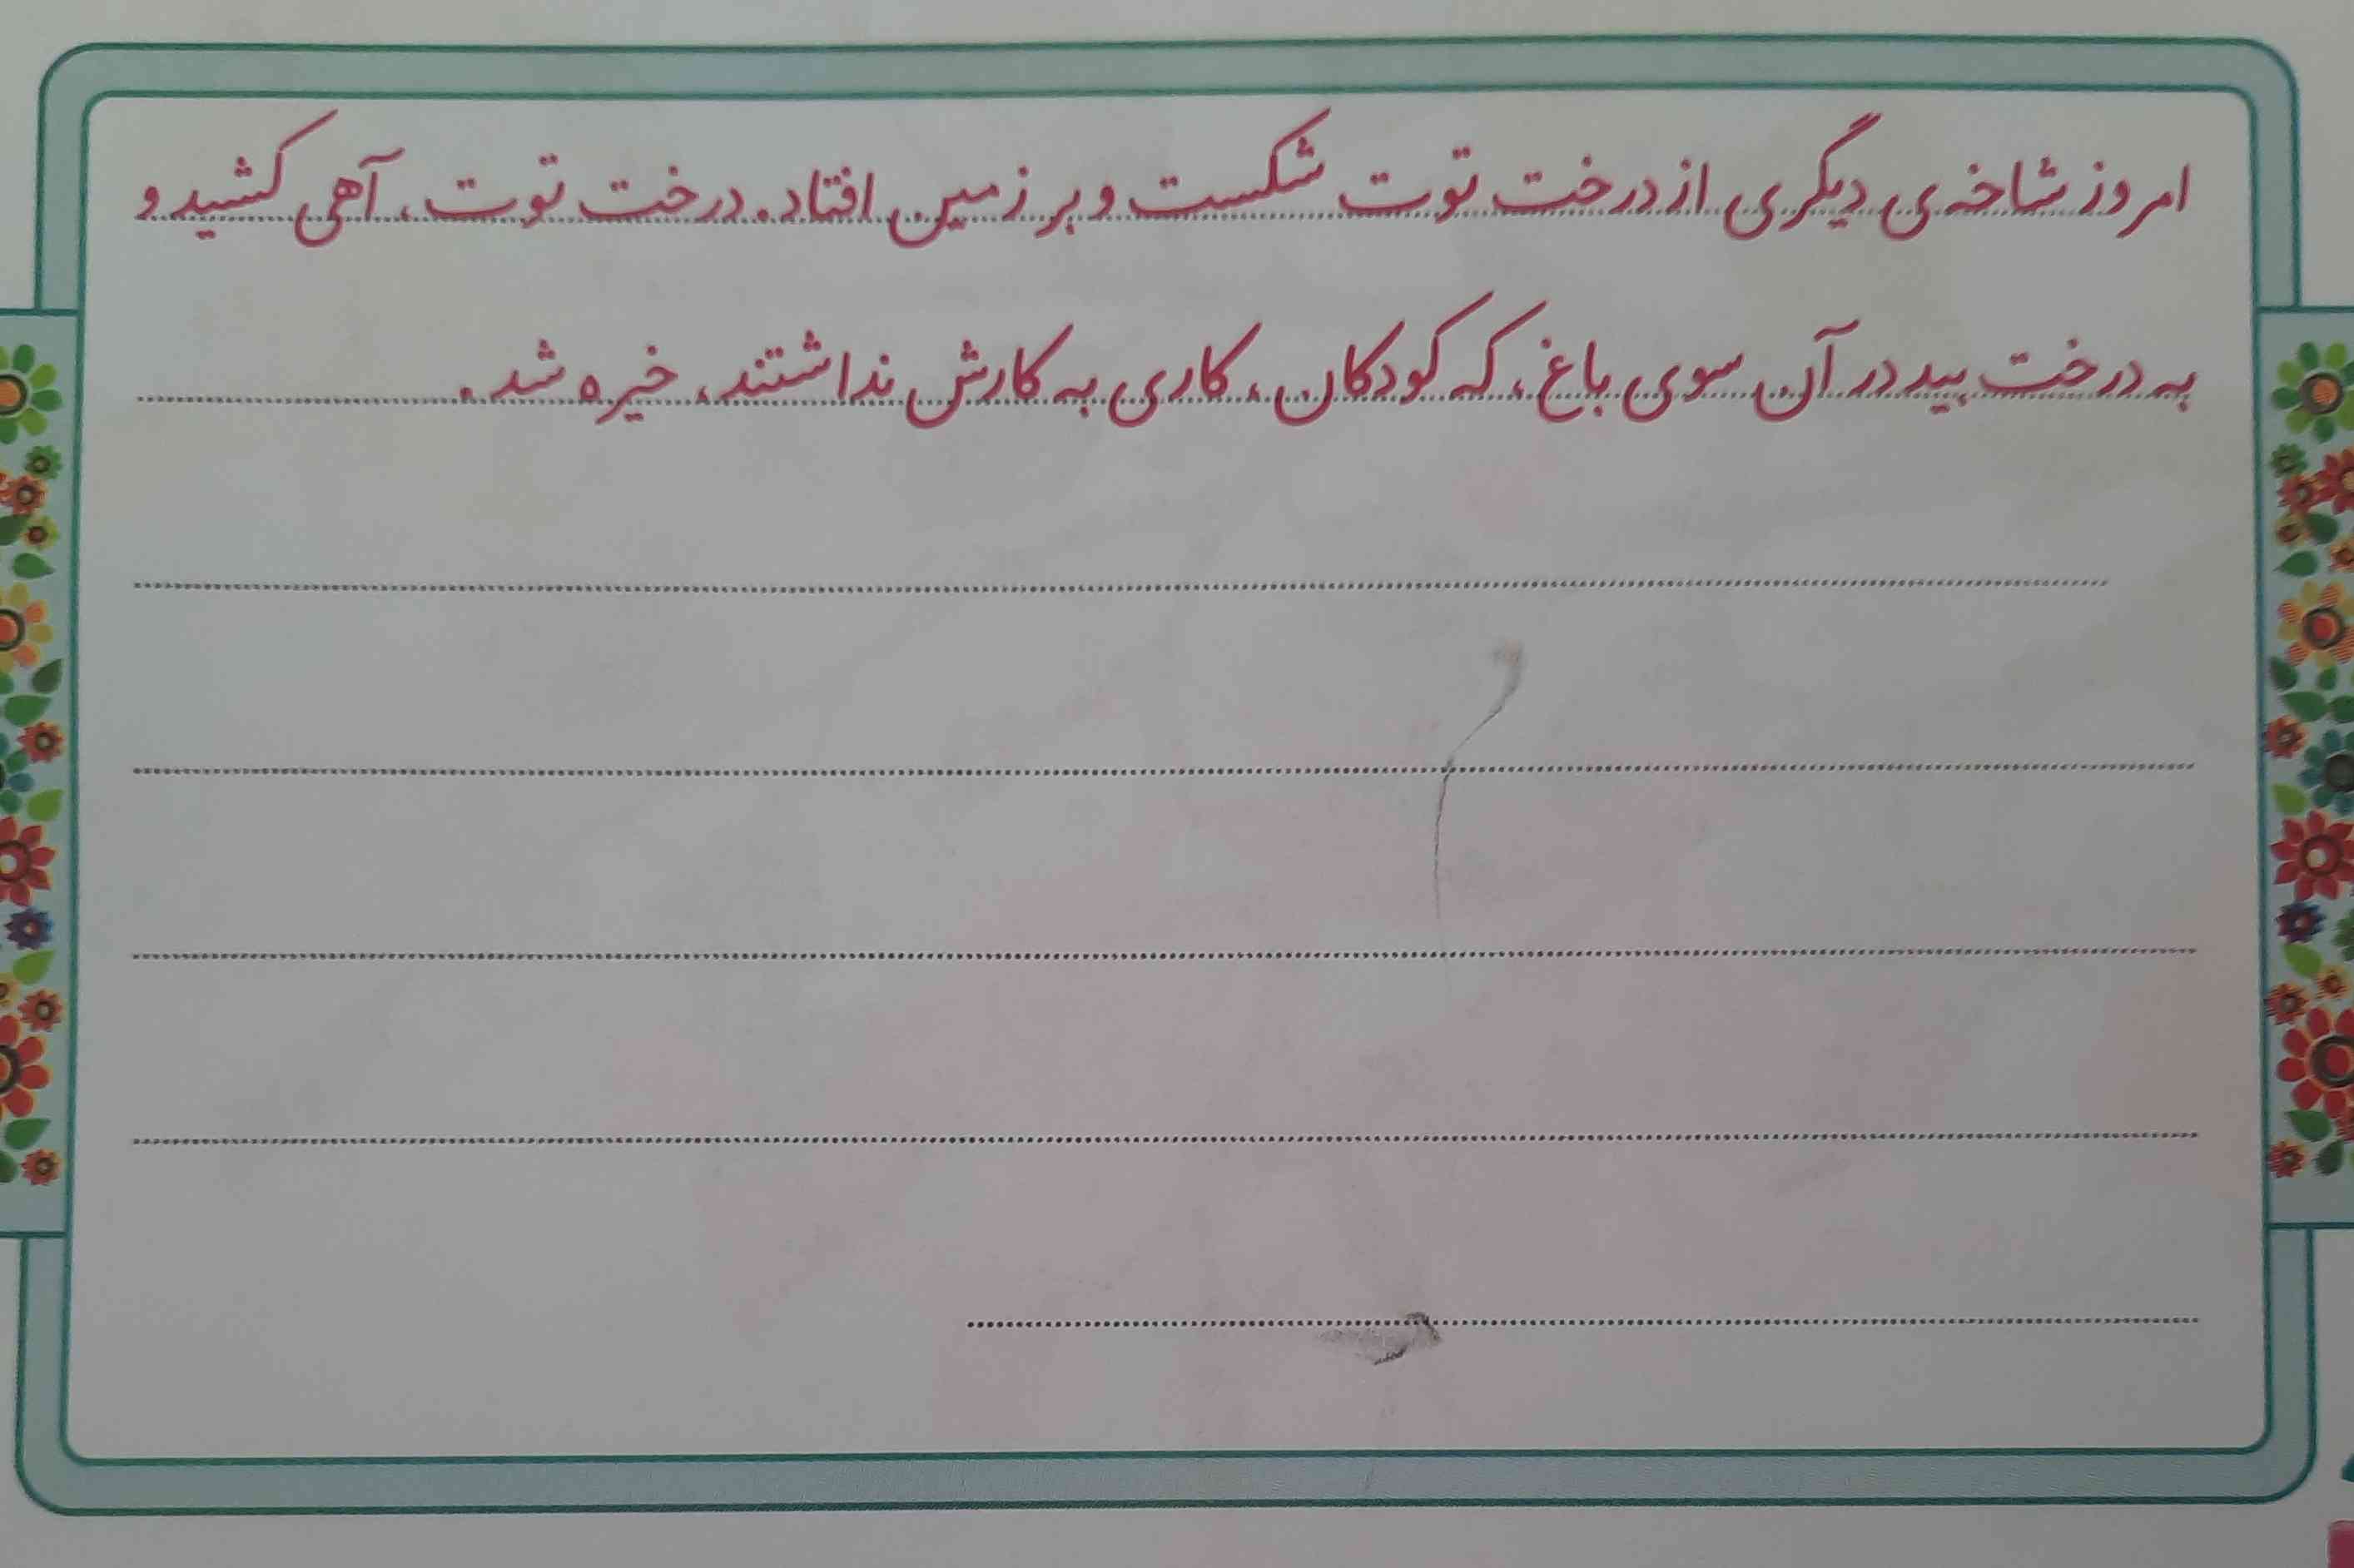 امروز شاخه‌ی دیگری از درخت توت شکست و بر زمین افتاد. درخت توت، آهی کشید و
به درخت بید در آن سوی باغ، که کودکان، کاری به کارش نداشتند، خیره شد.